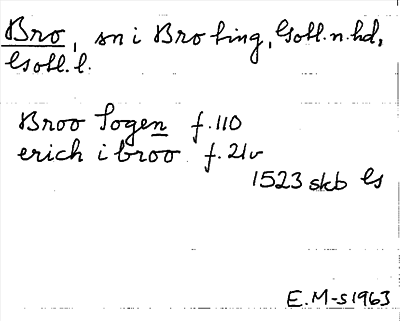 Bro, sn i Bro ting, Gotl. n. hd,
Gotl. l.
Broo Sogen f. 110
erich i broo f. 21v
1523 skb Gs
E.M-s 1963